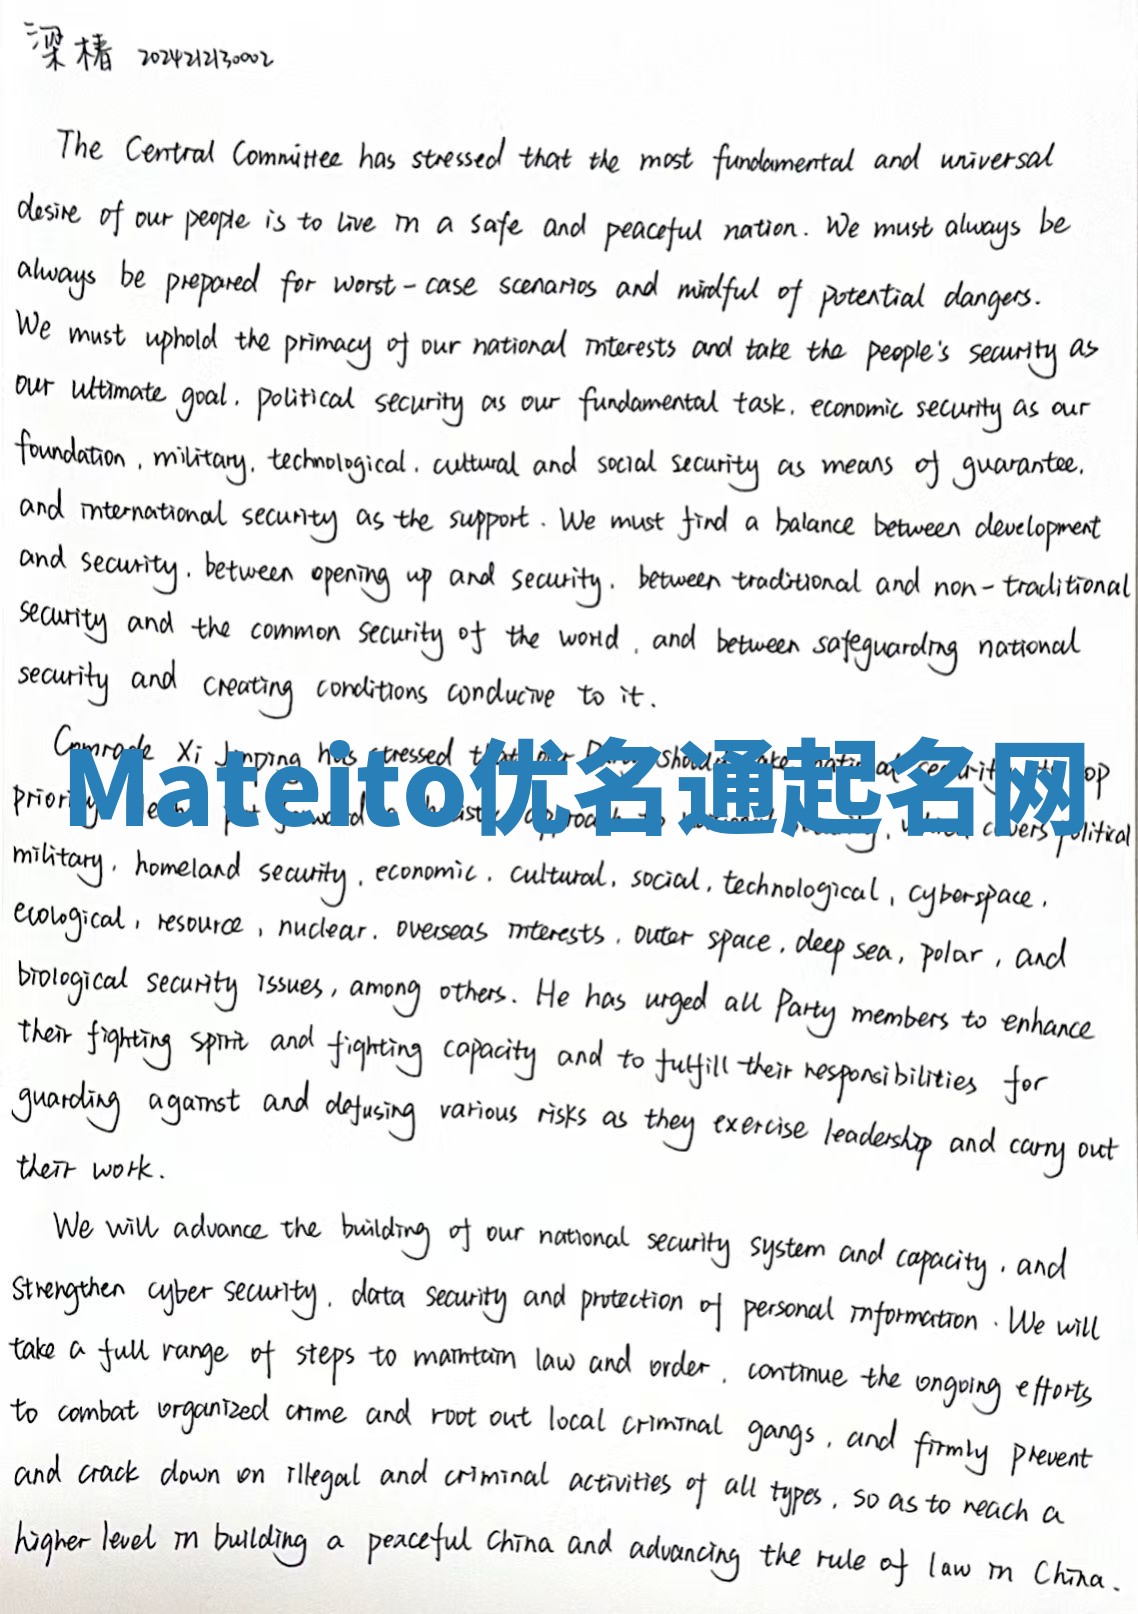 梁椿 2024212130002
The Central Committee has stressed that the most fundamental and universal
desire of our people is to live in a safe and peaceful nation. We must always be
always be prepared for worst-case scenarios and mindful of potential dangers.
We must uphold the primacy of our national interests and take the people's security as
our ultimate goal, political security as our fundamental task, economic security as our
foundation, military, technological, cultural and social security as means of guarantee,
and international security as the support. We must find a balance between development
and security, between opening up and security, between traditional and non-traditional
security and the common security of the world, and between safeguarding national
security and creating conditions conducive to it.
Comrade Xi Jinping has stressed that our Party should make national security its top
Mateito优名通起名网
priority put forward a holistic approach to national security, which covers political
military, homeland security, economic, cultural, social, technological, cyberspace,
ecological, resource, nuclear, overseas interests, outer space, deep sea, polar, and
biological security issues, among others. He has urged all Party members to enhance
their fighting spirit and fighting capacity and to fulfill their responsibilities for
guarding against and defusing various risks as they exercise leadership and carry out
their work.
We will advance the building of our national security system and capacity, and
strengthen cyber security, data security and protection of personal information. We will
take a full range of steps to maintain law and order, continue the ongoing efforts
to combat organized crime and root out local criminal gangs, and firmly prevent
and crack down on illegal and criminal activities of all types, so as to reach a
higher level in building a peaceful China and advancing the rule of law in China.